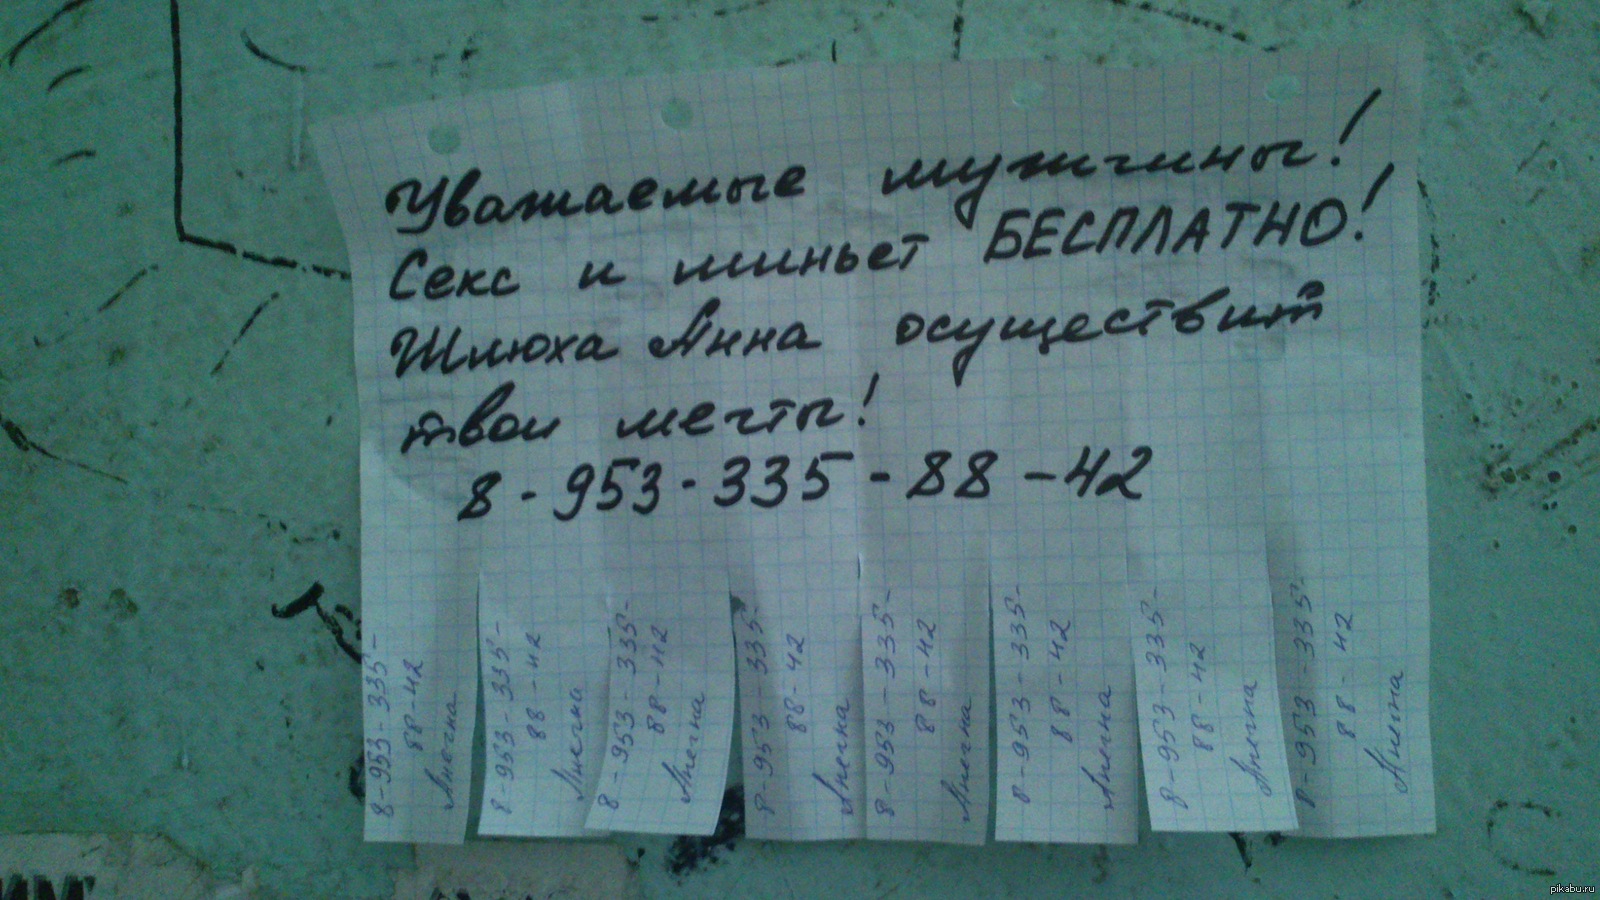 Уважаемые мужчины!
Секс и миньет БЕСПЛАТНО!
Шлюха Анна осуществит
твои мечты!
8-953-335-88-42
8-953-335-
88-42
Анечка
8-953-335-
88-42
Анечка
8-953-335-
88-42
Анечка
8-953-335-
88-42
Анечка
8-953-335-
88-42
Анечка
8-953-335-
88-42
Анечка
8-953-335-
88-42
Анечка
8-953-335-
88-42
Анечка
pikabu.ru